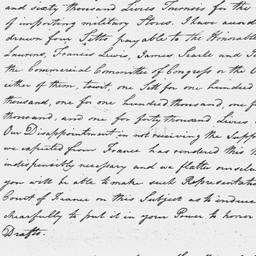 and sixty thousand Livres Tournois for the
of importing military Stores. I have accord
drawn four Setts, payable to the Honorable
Laurens, Francis Lewis, James Searle and
the Commercial Committee of Congress or the O
either of them, towit, one Sett for one hundred
thousand, one for one hundred thousand, one f
thousand, and one for forty thousand Livres
Our Disappointment in not receiving the Supp
we expected from France has rendered this
indispensibly necessary and we flatter ourselve
you will be able to make such Representatio
Court of France on this Subject as to induce
chearfully to put it in your Power to honor
Drafts.